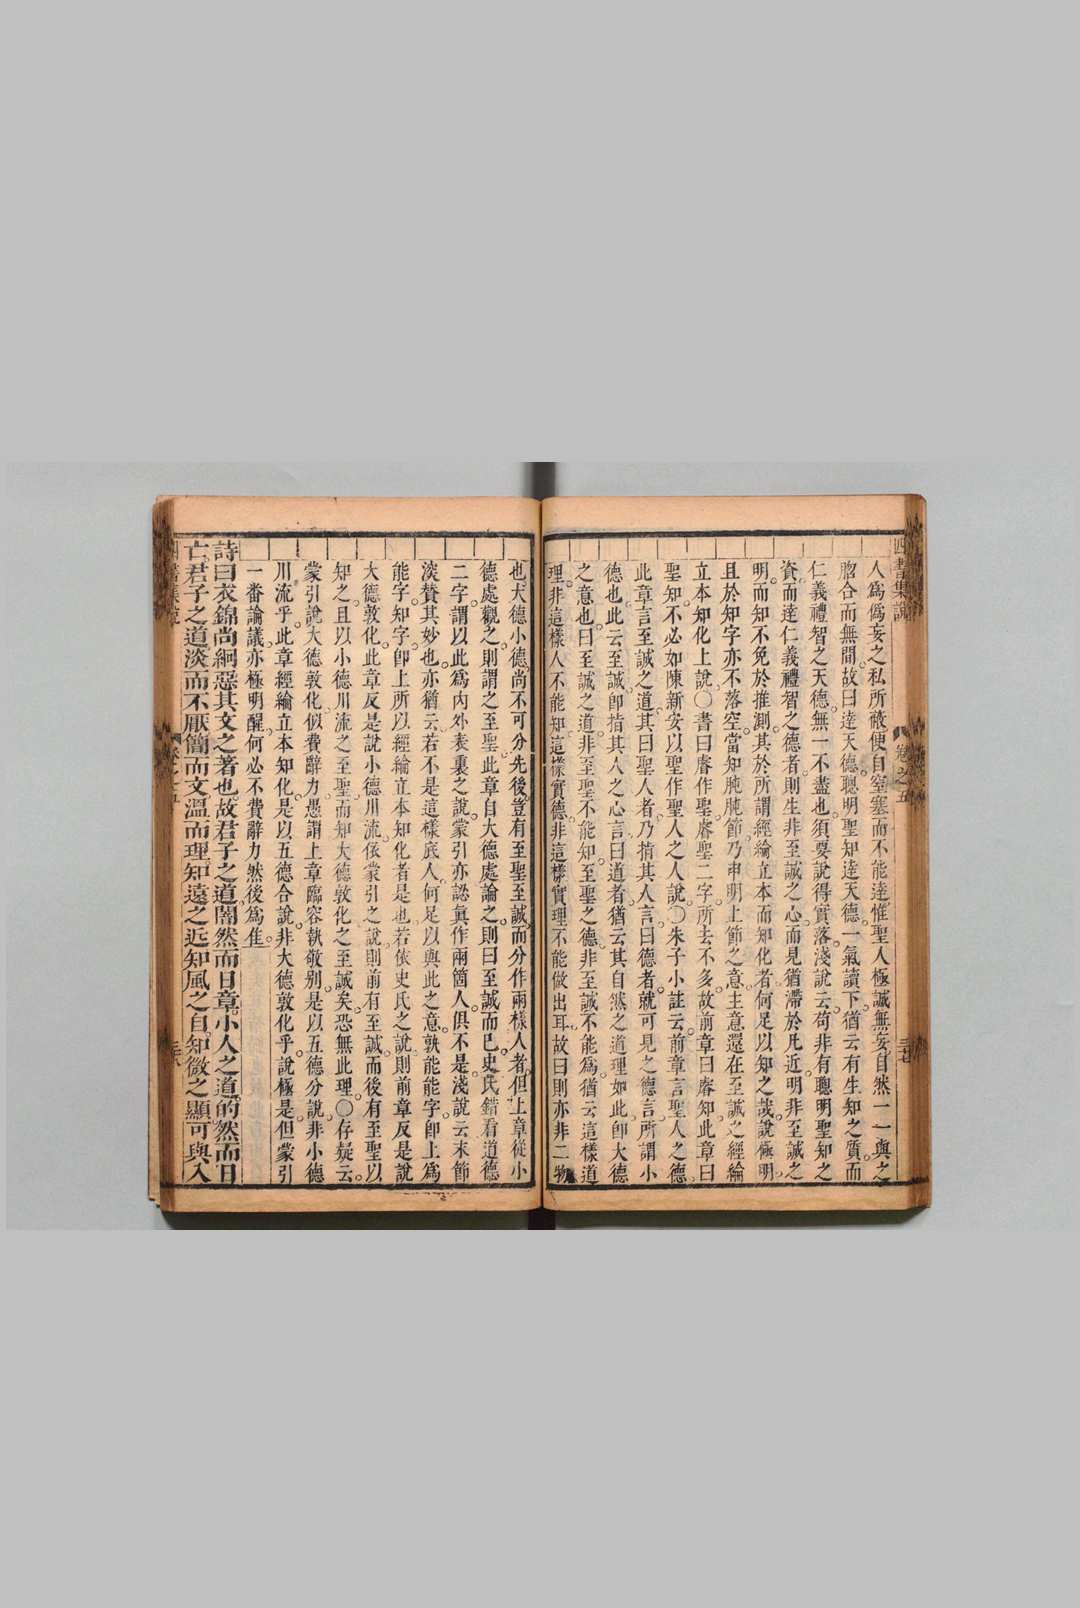 四書集説
卷之五
三七
人爲僞妄之私所蔽便自窒塞而不能達惟聖人極誠無妄自然一一與之
脗合而無間故曰達天德聰明聖知達天德一氣讀下猶云有生知之質而
仁義禮智之天德無一不盡也須要說得實落淺說云苟非有聰明聖知之
資而達仁義禮智之德者則生非至誠之心而見猶滯於凡近明非至誠之
明而知不免於推測其於所謂經綸立本而知化者何足以知之哉說極明
且於知字亦不落空當知肫肫節乃申明上節之意主意還在至誠之經綸
立本知化上說○書曰睿作聖睿聖二字所去不多故前章曰睿知此章曰
聖知不必如陳新安以聖作聖人之人說○朱子小註云前章言聖人之德
此章言至誠之道其曰聖人者乃指其人言曰德者就可見之德言所謂小
德也此云至誠卽指其人之心言曰道者猶云其自然之道理如此卽大德
之意也曰至誠之道非至聖不能知至聖之德非至誠不能爲猶云這樣道
理非這樣人不能知這樣實德非這樣實理不能做出耳故曰則亦非二物
也大德小德尚不可分先後豈有至聖至誠而分作兩樣人者但上章從小
德處觀之則謂之至聖此章自大德處論之則曰至誠而已史氏錯看道德
二字謂以此爲內外表裏之說蒙引亦認眞作兩箇人俱不是淺說云末節
淡賛其妙也亦猶云若不是這樣底人何足以與此之意孰能能字卽上爲
能字知字卽上所以經綸立本知化者是也若依史氏之說則前章反是說
大德敦化此章反是說小德川流依蒙引之說則前有至誠而後有至聖以
知之且以小德川流之至聖而知大德敦化之至誠矣恐無此理○存疑云
蒙引說大德敦化似費辭力愚謂上章臨容執敬别是以五德分說非小德
川流乎此章經綸立本知化是以五德合說非大德敦化乎說極是但蒙引
一番論議亦極明醒何必不費辭力然後爲佳
詩曰衣錦尚絅惡其文之著也故君子之道闇然而日章小人之道的然而日
亡君子之道淡而不厭簡而文溫而理知遠之近知風之自知微之顯可與入
四書集說
卷之五
三八